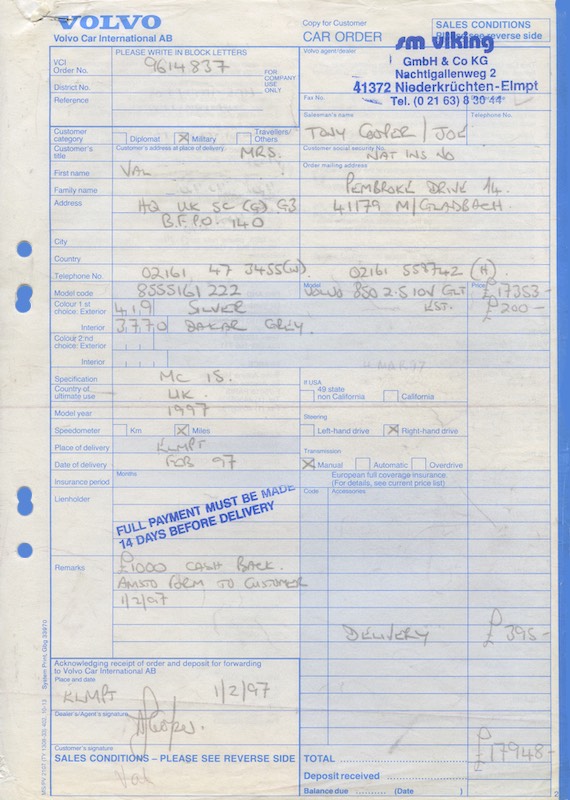 VOLVO
Volvo Car International AB
Copy for Customer
CAR ORDER
SALES CONDITIONS
Please see reverse side
PLEASE WRITE IN BLOCK LETTERS
VCI
Order No.
9614837
District No.
Reference
FOR
COMPANY
USE
ONLY
Volvo agent/dealer
sm viking
GmbH & Co KG
Nachtigallenweg 2
41372 Niederkrüchten-Elmpt
Tel. (0 21 63) 8 30 44
Fax No.
Telephone No.
Salesman's name
TONY COOPER / JOE
Customer
category
Diplomat
Military
Travellers/
Others
Customer's
title
Customer's address at place of delivery
MRS.
Customer social security No.
NAT INS NO
First name
VAL
Order mailing address
PEMBROKE DRIVE 14.
Family name
41179 M/GLADBACH.
Address
HQ UK SC (G) G3
B.F.P.O. 140
City
Country
Telephone No.
02161 47 3455 (W).
02161 558742 (H)
Model code
8555161 222
Model
VOLVO 850 2.5 10V GLT
EST.
Price
£ 17353-
Colour 1st
choice: Exterior
4,1,9
SILVER
£ 200-
Interior
3,7,7,0
DAKAR GREY.
Colour 2nd
choice: Exterior
Interior
Specification
MC 15.
Country of
ultimate use
UK.
Model year
1997
If USA
49 state
non California
California
Speedometer
Km
Miles
Steering
Left-hand drive
Right-hand drive
Place of delivery
ELMPT
Transmission
Manual
Automatic
Overdrive
Date of delivery
FEB 97
Insurance period
Months
European full coverage insurance.
(For details, see current price list)
Lienholder
Code
Accessories
FULL PAYMENT MUST BE MADE
14 DAYS BEFORE DELIVERY
Remarks
£1000 CASH BACK.
AMSTO FORM TO CUSTOMER
1/2/97
DELIVERY
£ 395-
Acknowledging receipt of order and deposit for forwarding
to Volvo Car International AB
Place and date
ELMPT
1/2/97
Dealer's/Agent's signature
Customer's signature
Val
SALES CONDITIONS – PLEASE SEE REVERSE SIDE
TOTAL
£ 17948-
Deposit received
Balance due
(Date
)